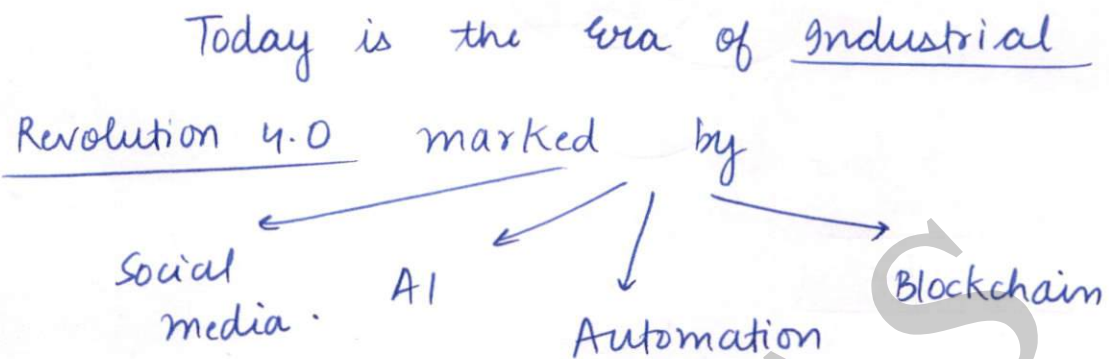 Today is the era of Industrial
Revolution 4.0 marked by
Social
media.
AI
Automation
Blockchain